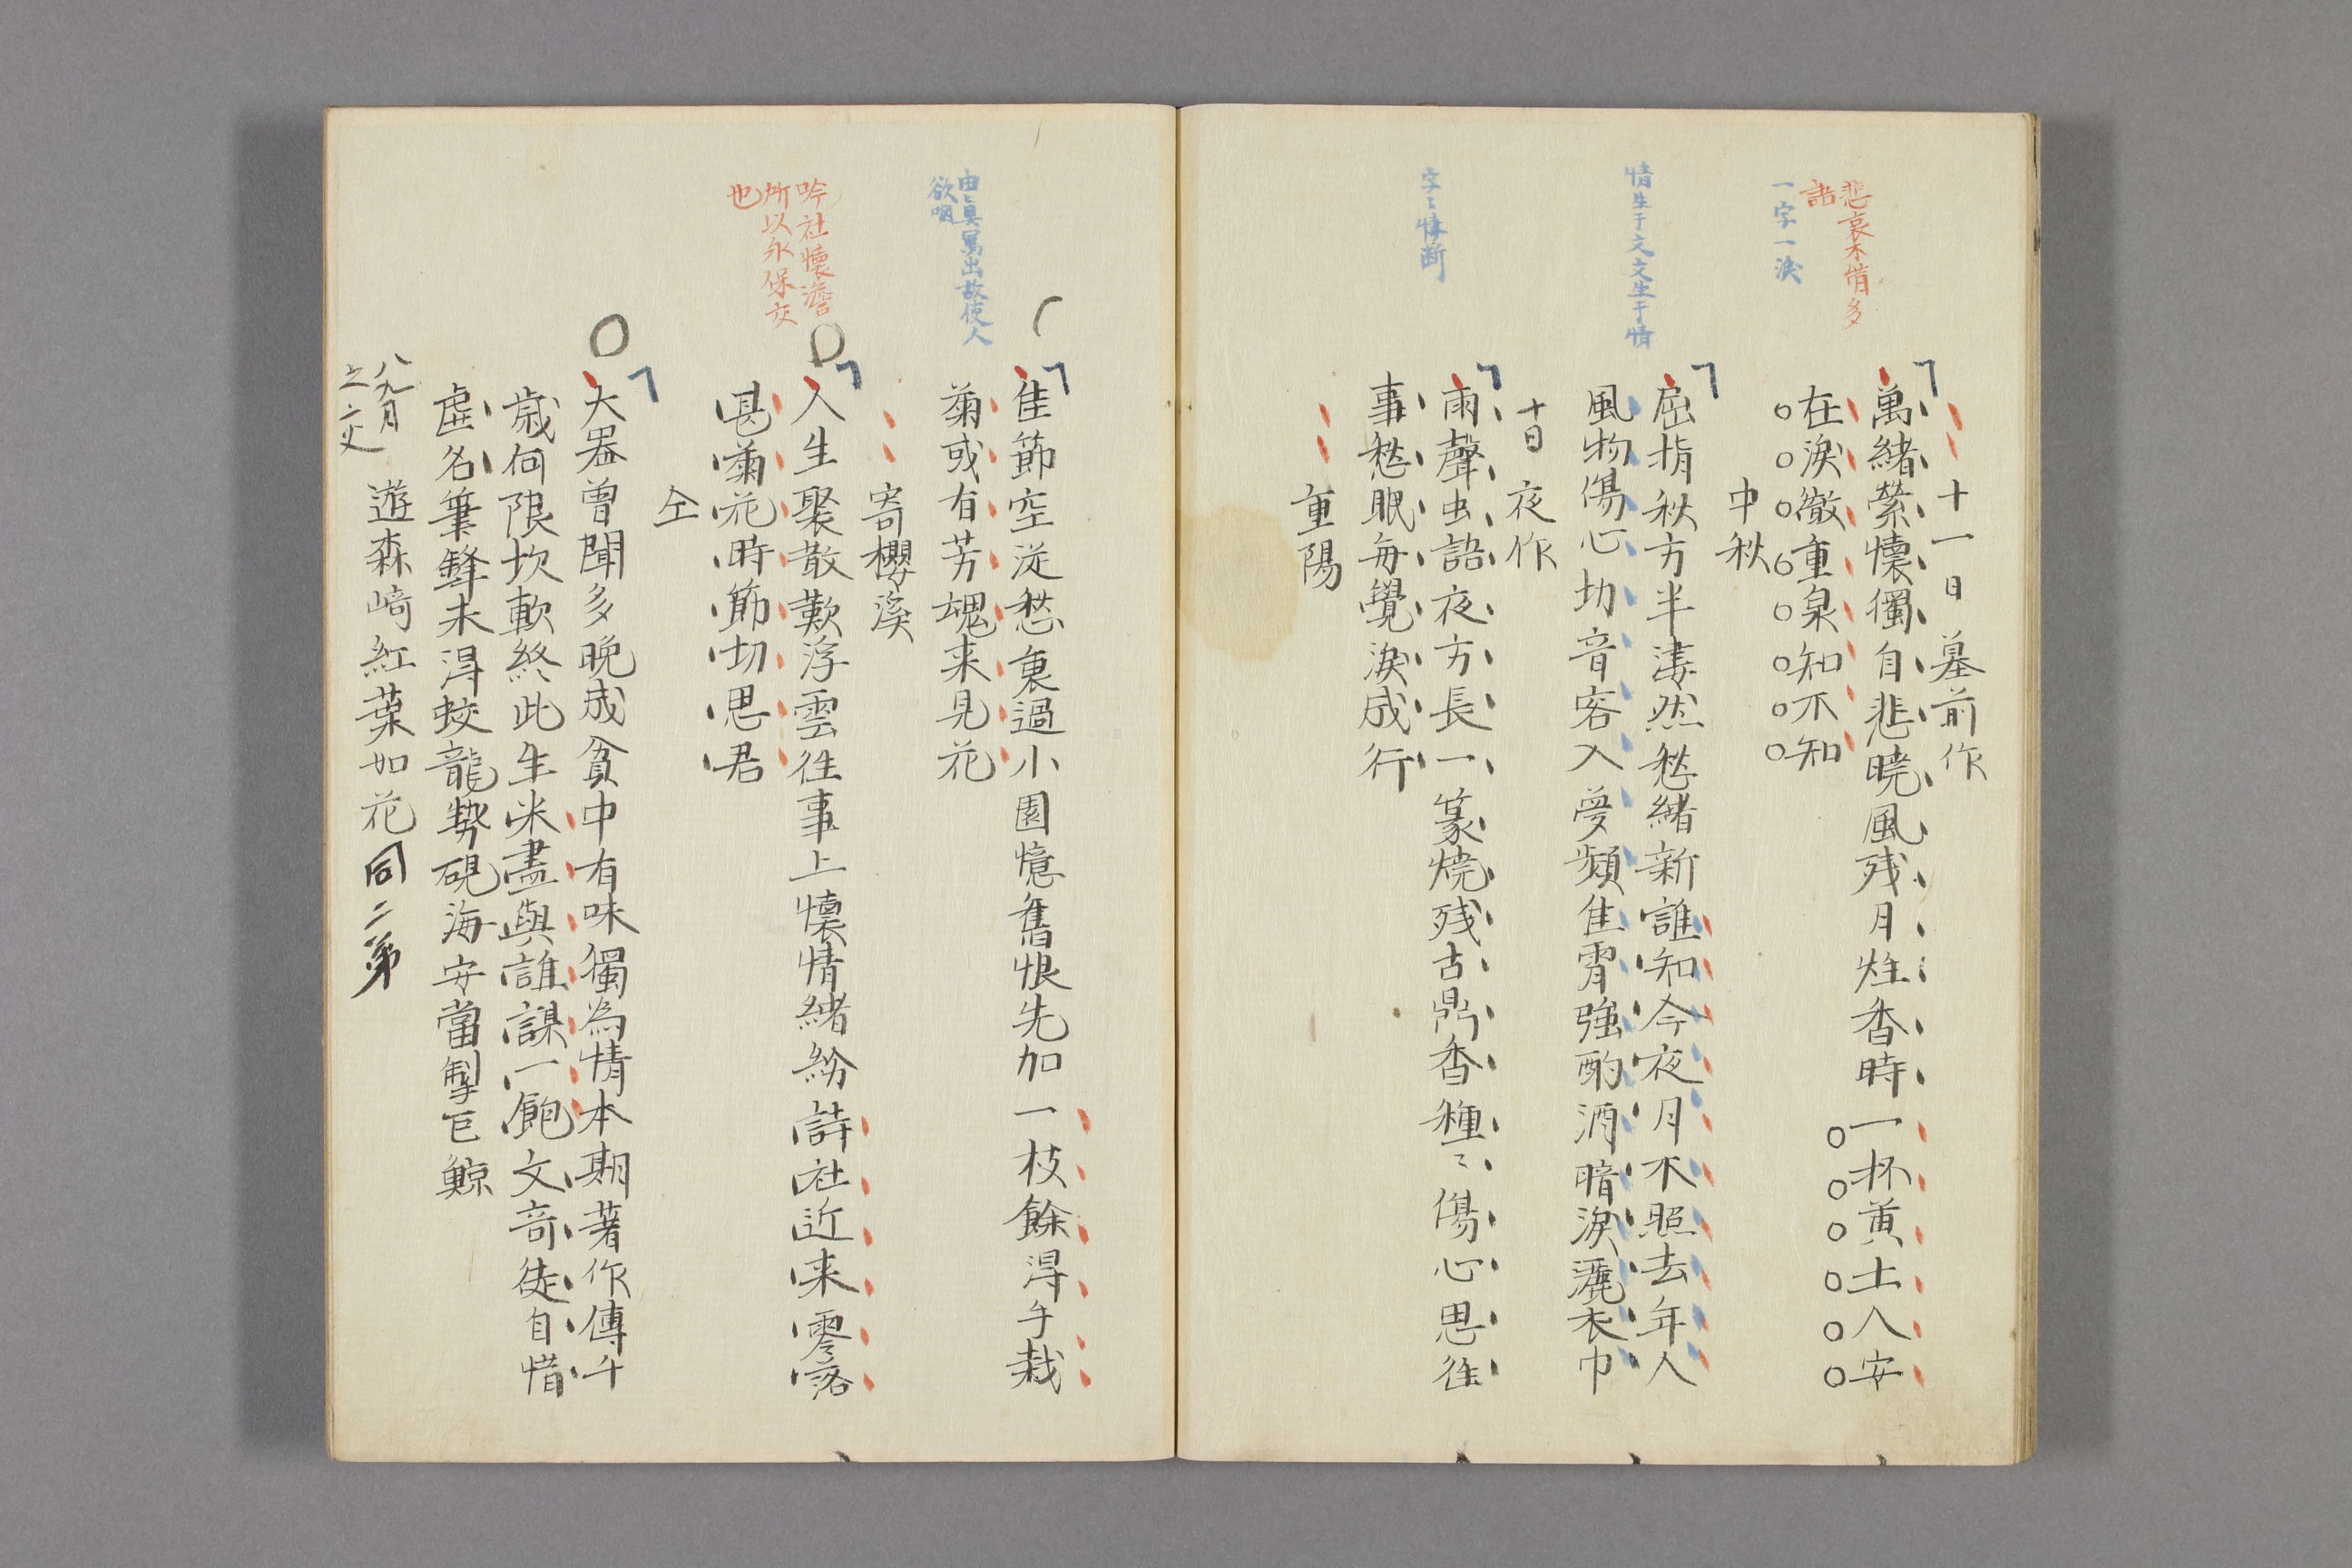 十一日墓前作
悲哀不惜多
諸
一字一淚
萬緒縈懷獨自悲曉風残月炷香時一杯黄土人安
在淚澈重泉知不知
中秋
情生于文文生于情
屈指秋方半凄然愁緒新誰知今夜月不照去年人
風物傷心切音容入夢頻佳宵強酌酒暗淚灑衣巾
十日夜作
字〻悽断
雨聲虫語夜方長一篆燒残古鼎香種〻傷心思往
事愁眠每覺淚成行
重陽
由真寫出故使人
欲咽
佳節空從愁裏過小園憶舊恨先加一枝餘得手栽
菊或有芳魂来見花
寄櫻溪
吟社懷澹
所以永保交
也
人生聚散歎浮雲往事上懷情緒紛詩社近来零落
甚菊花時節切思君
仝
大器曽聞多晩成貧中有味獨為情本期著作傳千
歳何限坎軻終此生米盡與誰謀一飽文奇徒自惜
虚名筆鋒未得蛟龍勢硯海安當掣巨鯨
八九月
之交
遊森﨑紅葉如花同二弟